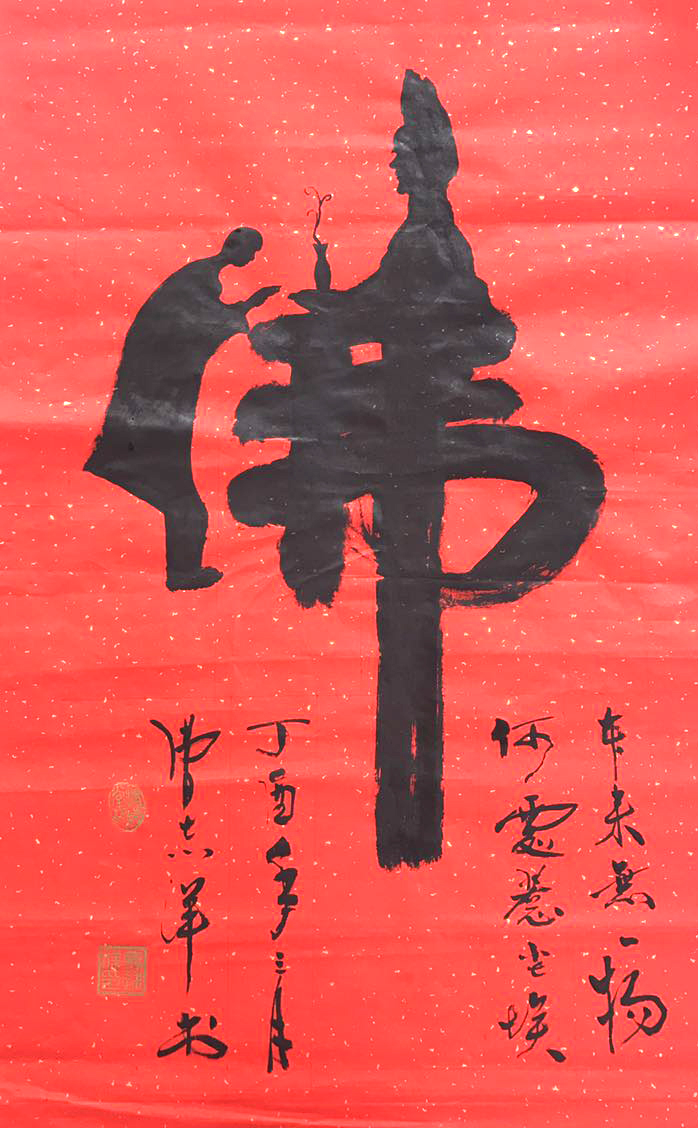 佛
本来無一物
何處惹尘埃
丁酉年三月
曹志书